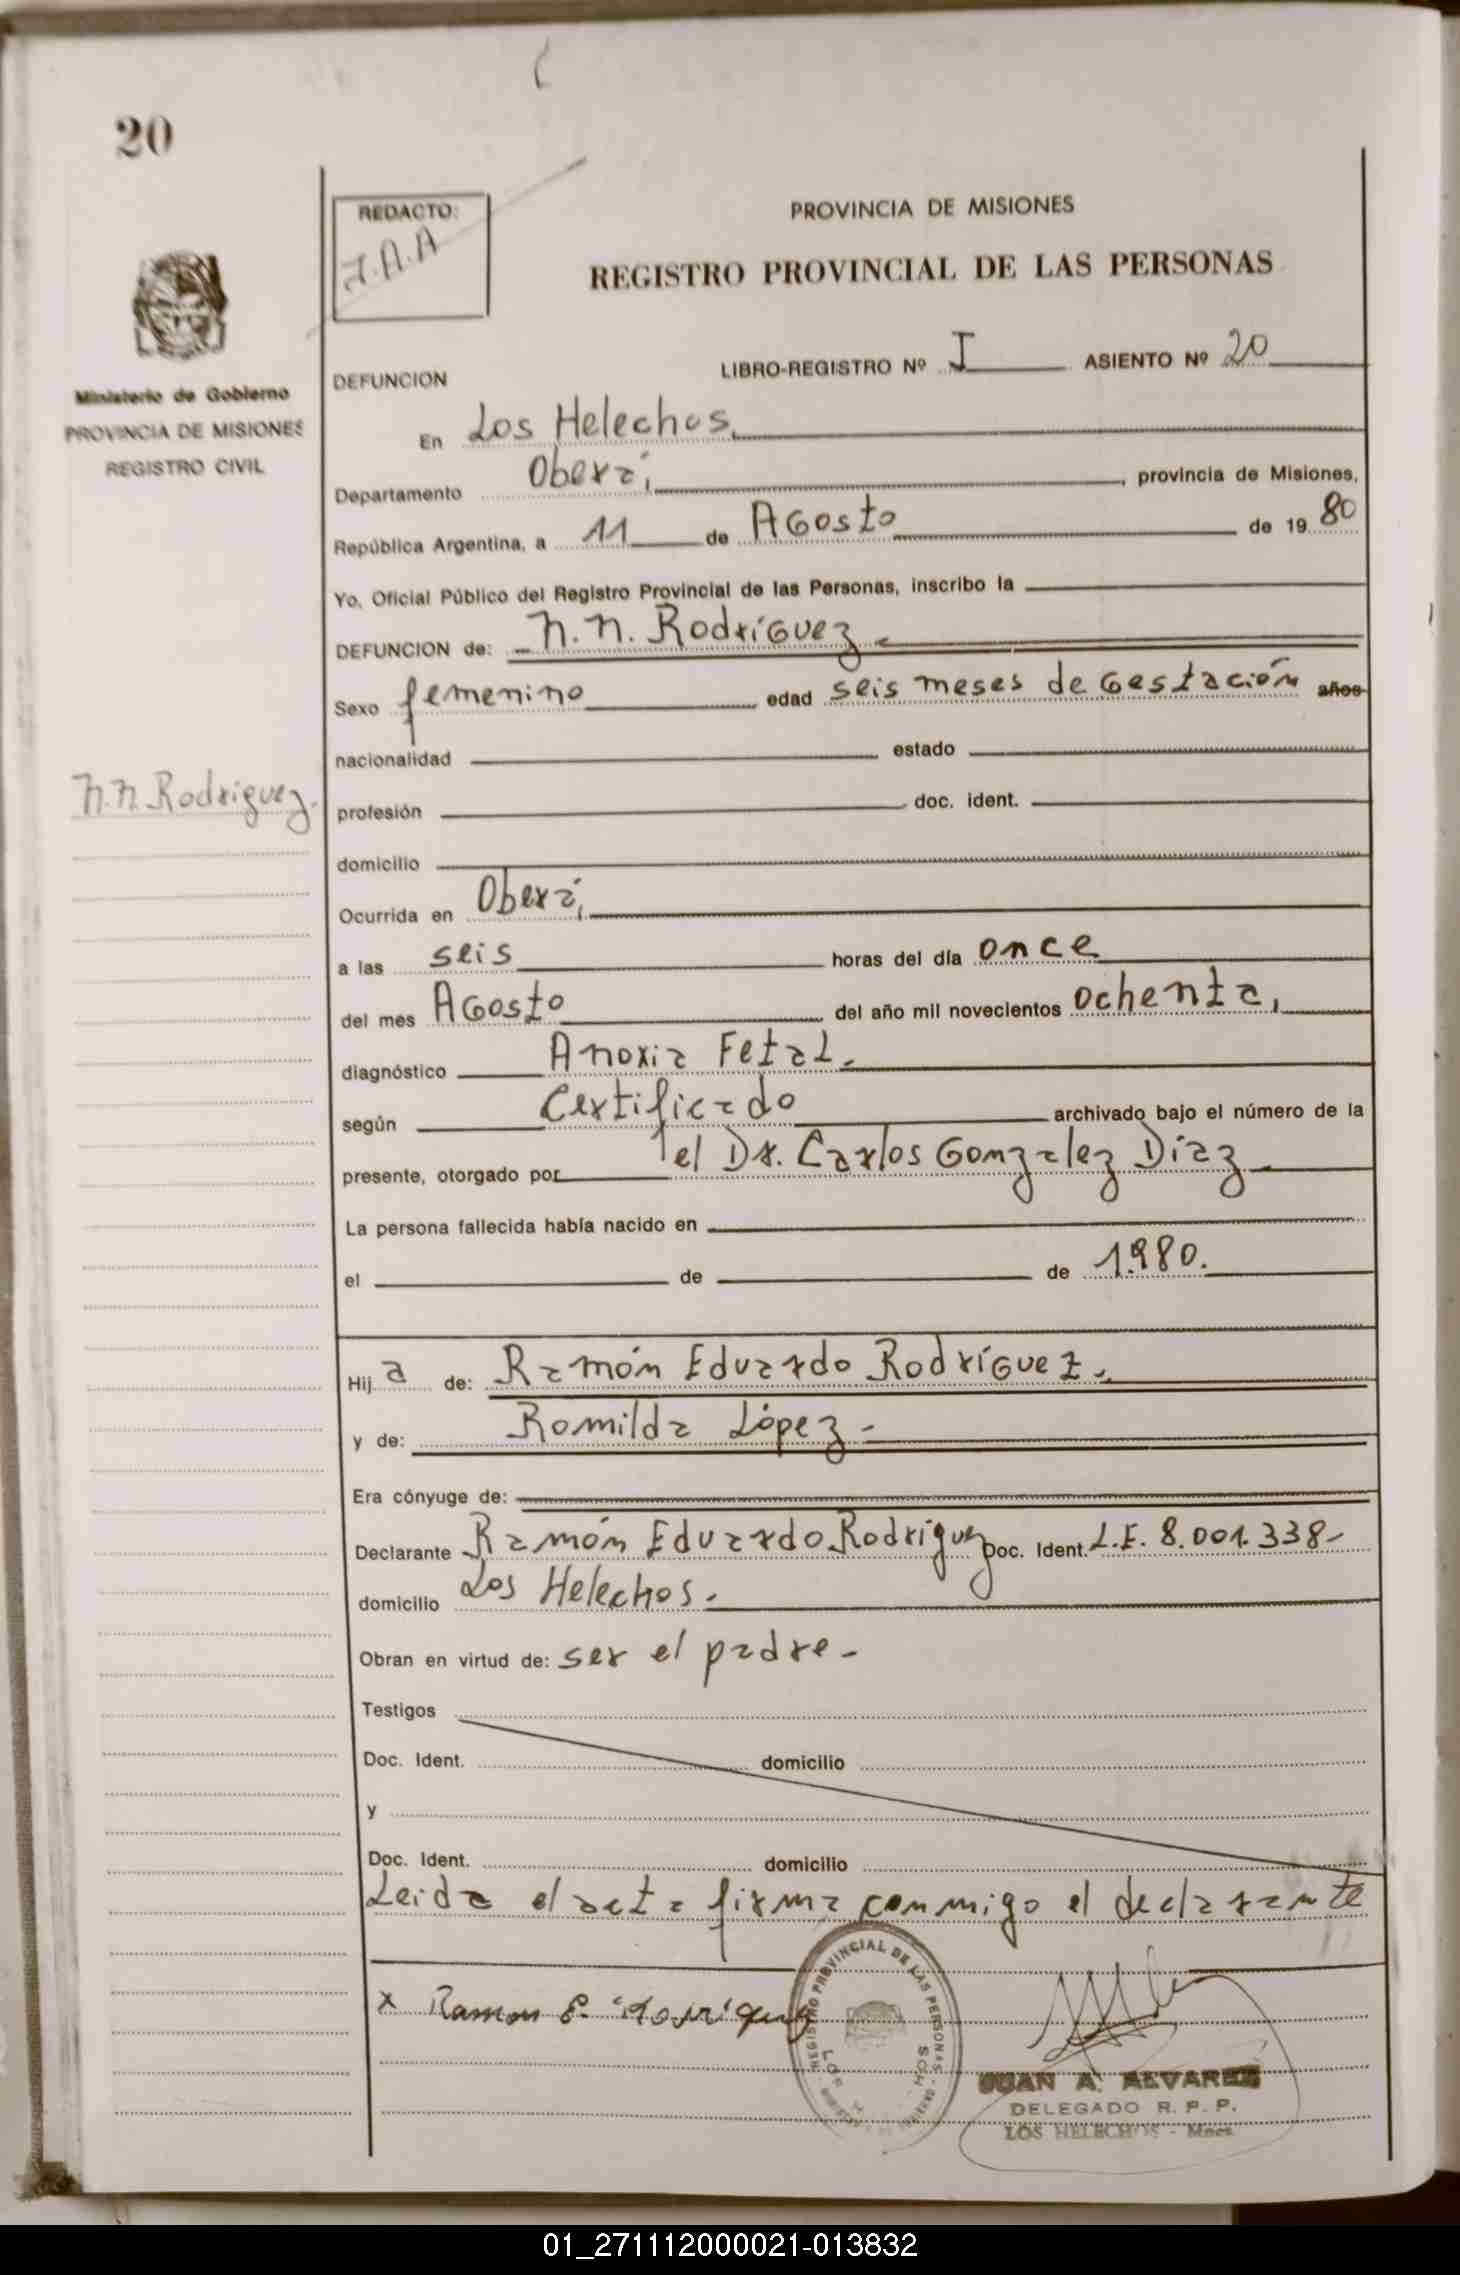 20
REDACTO:
J.A.A
PROVINCIA DE MISIONES
REGISTRO PROVINCIAL DE LAS PERSONAS
Ministerio de Gobierno
PROVINCIA DE MISIONES
REGISTRO CIVIL
LIBRO-REGISTRO Nº I ASIENTO Nº 20
DEFUNCION
En Los Helechos,
Departamento Oberá, , provincia de Misiones,
República Argentina, a 11 de Agosto de 19 80
Yo, Oficial Público del Registro Provincial de las Personas, inscribo la
DEFUNCION de: - N.N. Rodríguez -
Sexo femenino edad seis meses de Gestación años
nacionalidad estado
N.N. Rodriguez.
profesión doc. ident.
domicilio
Ocurrida en Oberá,
a las seis horas del día once
del mes Agosto del año mil novecientos ochenta,
diagnóstico Anoxia Fetal.
según Certificado archivado bajo el número de la
presente, otorgado por el Dr. Carlos Gonzalez Díaz
La persona fallecida había nacido en
el de de 1.980.
Hij a de: Ramón Eduardo Rodríguez.
y de: Romilda López -
Era cónyuge de:
Declarante Ramón Eduardo Rodríguez Doc. Ident. L.E. 8.001.338-
domicilio Los Helechos.
Obran en virtud de: ser el padre -
Testigos
Doc. Ident. domicilio
y
Doc. Ident. domicilio
Leida el acta firma conmigo el declarante
x Ramon E. Rodriguez
REGISTRO PROVINCIAL DE LAS PERSONAS
JUAN A. ALVAREZ
DELEGADO R. P. P.
LOS HELECHOS - Mnes
01_271112000021-013832